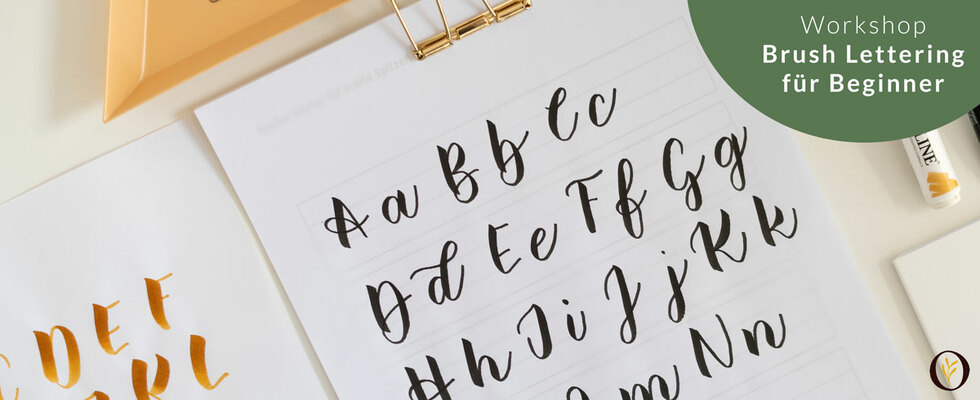 Workshop
Brush Lettering
für Beginner
Aa Bb Cc
Dd Ee Ff Gg
Hh Ii Jj Kk
m Nn
DEF
LINE